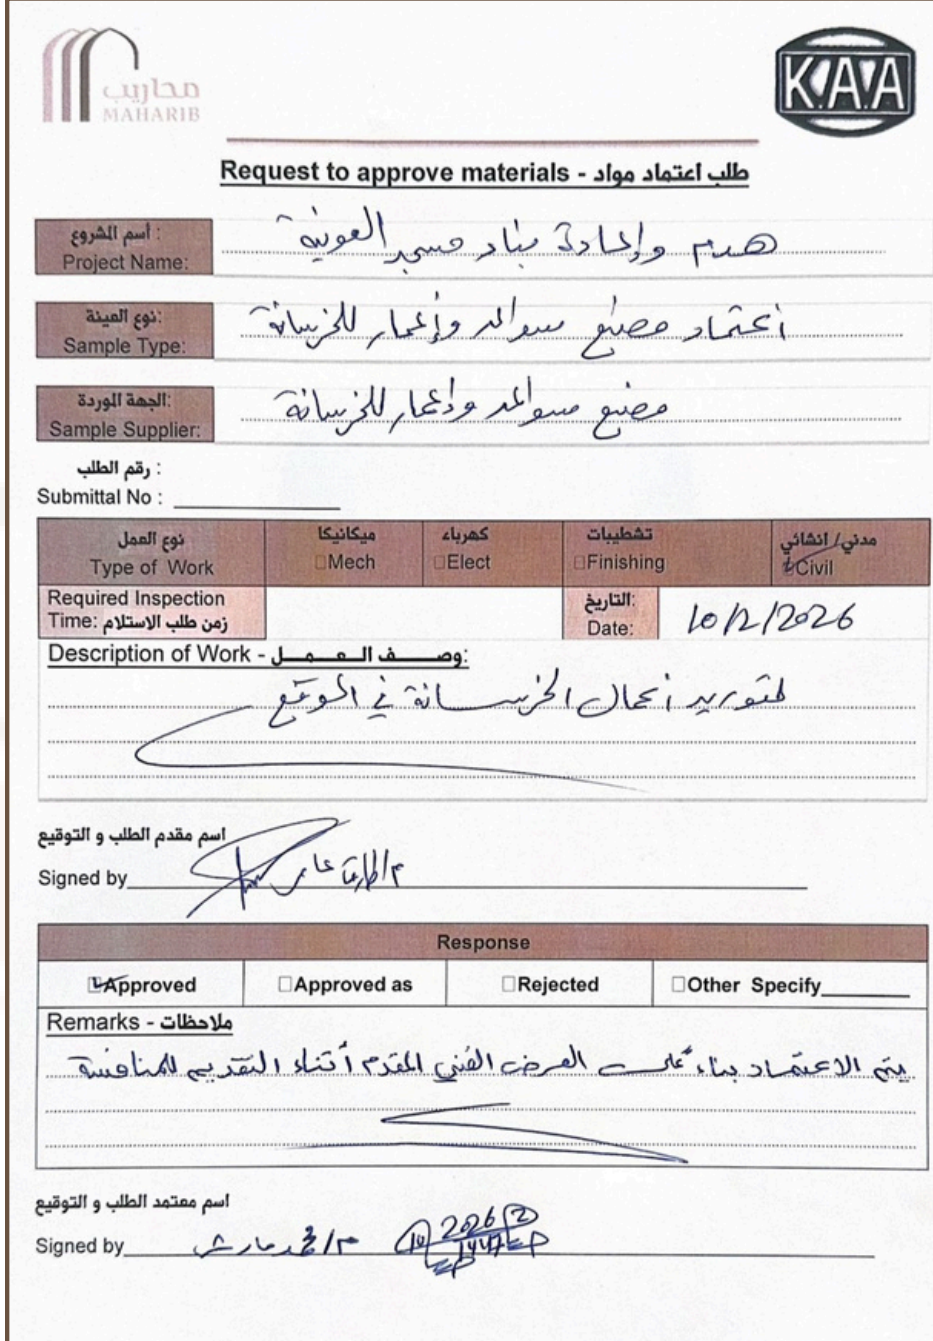 محاريب
MAHARIB
KAA
Request to approve materials - طلب اعتماد مواد
أسم المشروع :
Project Name:
هدم وإعادة بناء مسجد العونية
نوع العينة:
Sample Type:
أعتماد مصنع سواعد وإعمار للخرسانة
الجهة الموردة:
Sample Supplier:
مصنع سواعد وإعمار للخرسانة
رقم الطلب :
Submittal No :
نوع العمل ميكانيكا كهرباء تشطيبات مدني/ انشائي
Type of Work Mech Elect Finishing Civil
Required Inspection التاريخ:
Time: زمن طلب الاستلام Date: 10/2/2026
Description of Work - وصف العمل:
لتوريد أعمال الخرسانة في الموقع
اسم مقدم الطلب و التوقيع
Signed by
Response
Approved Approved as Rejected Other Specify
Remarks - ملاحظات
يتم الاعتماد بناءً على العرض الفني المقدم أثناء التقديم للمنافسة
اسم معتمد الطلب و التوقيع
Signed by م/محمد 2026